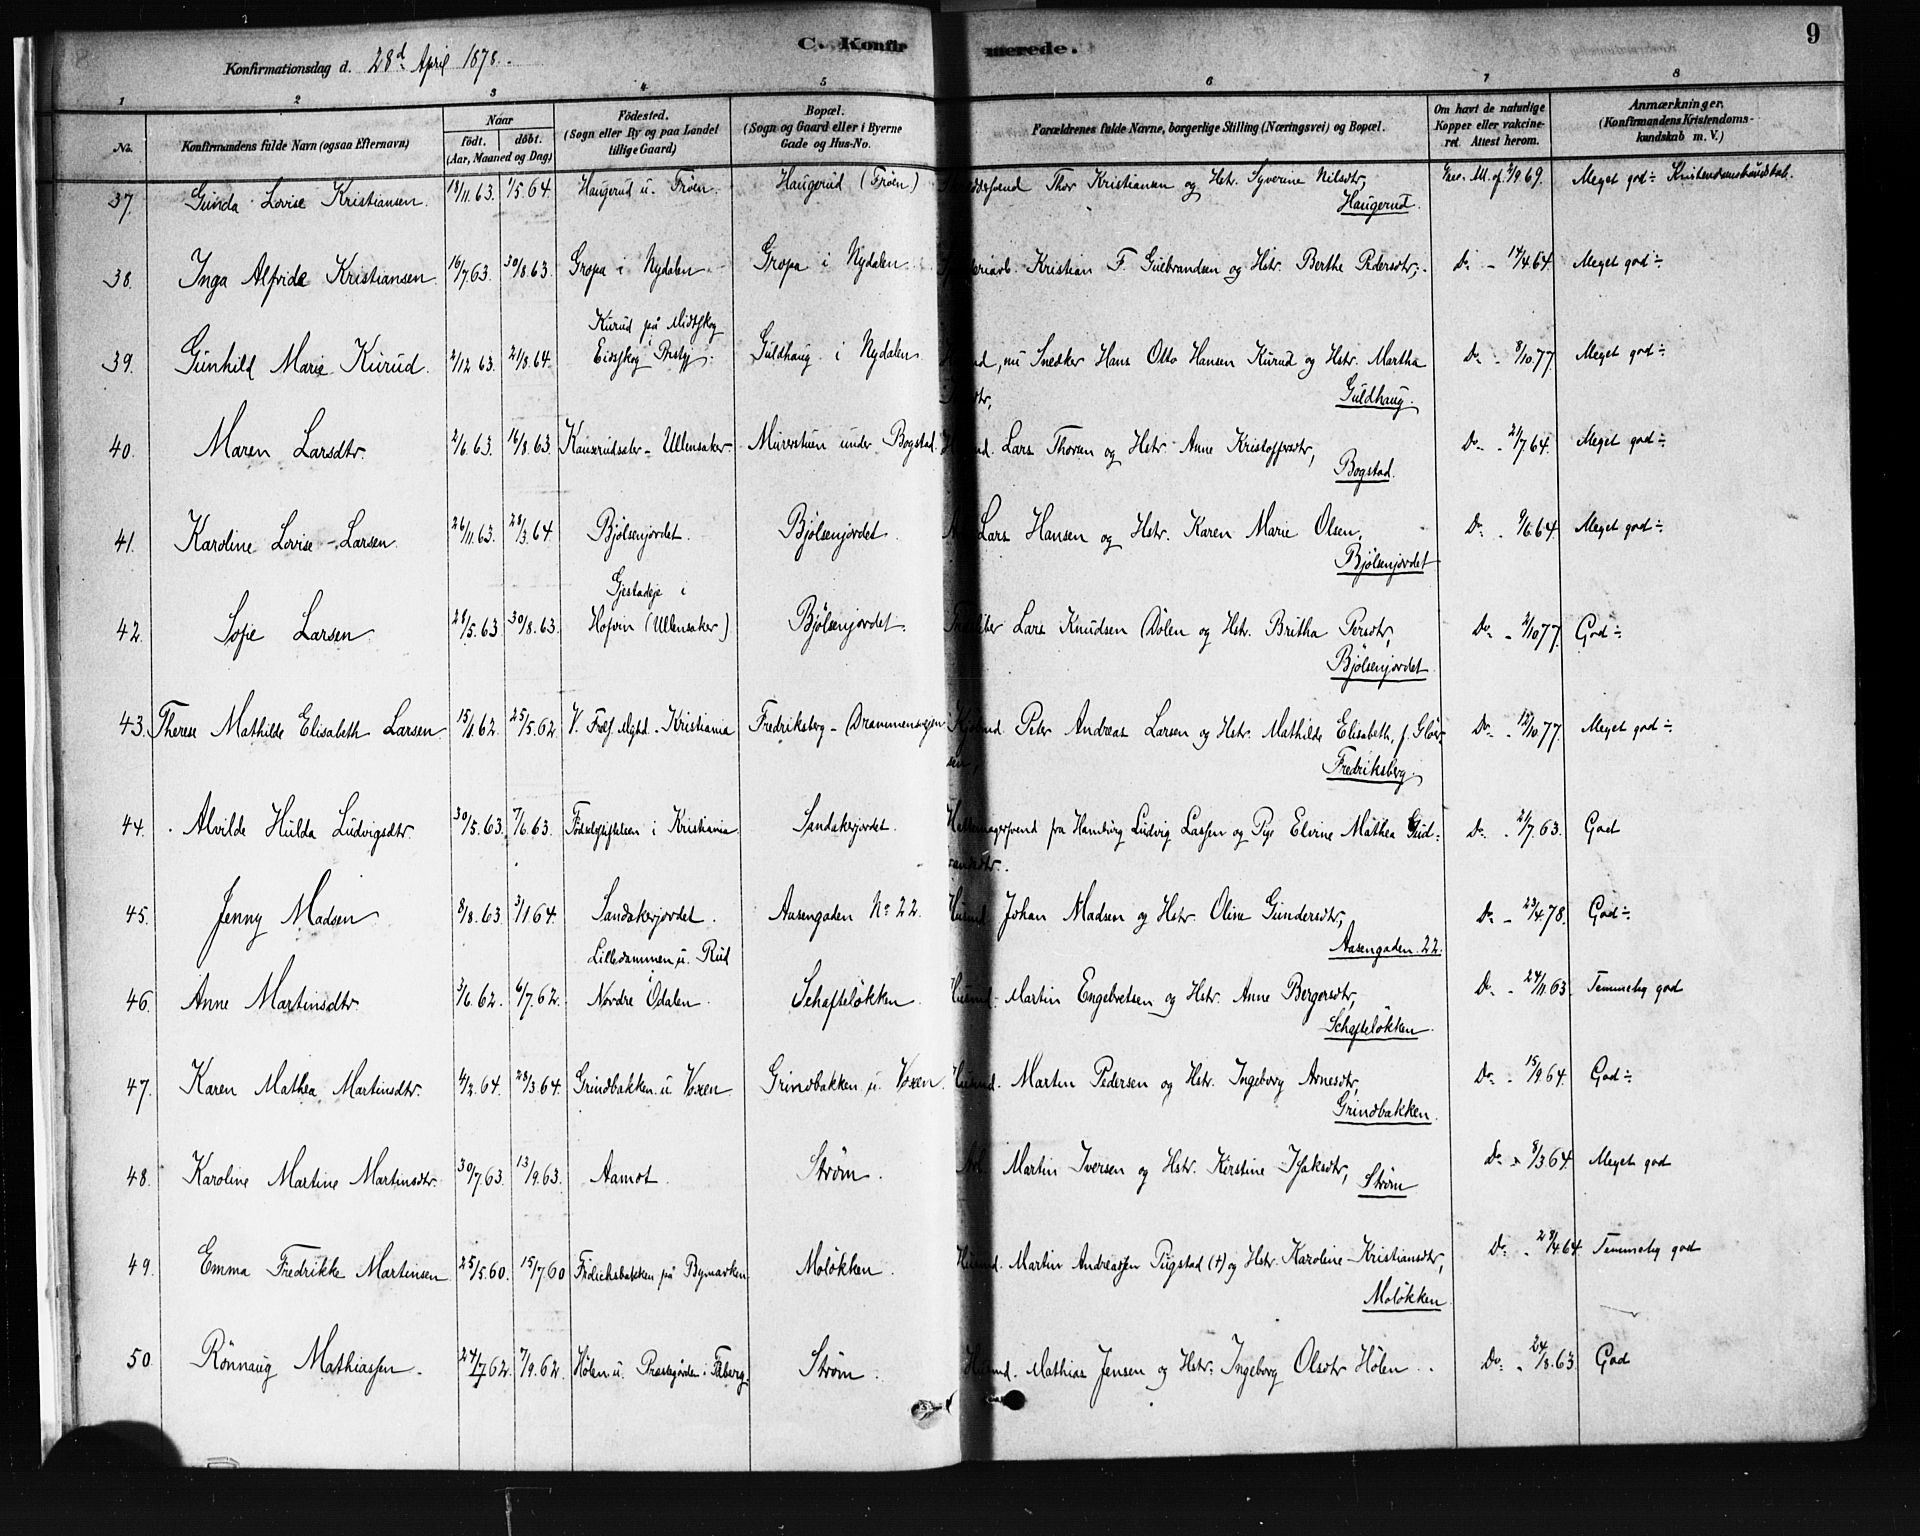 C. Konfirmerede.
9
Konfirmationsdag d. 28d April 1878.
1 2 3 4 5 6 7 8
No.
Konfirmandens fulde Navn (ogsaa Efternavn)
Naar
födt. döbt.
(Aar, Maaned og Dag)
Födested.
(Sogn eller By og paa Landet
tillige Gaard)
Bopæl.
(Sogn og Gaard eller i Byerne
Gade og Hus-No.
Forældrenes fulde Navne, borgerlige Stilling (Næringsvei) og Bopæl.
Om havt de naturlige
Kopper eller vakcine-
ret. Attest herom.
Anmærkninger.
(Konfirmandens Kristendoms-
kundskab m. V.)
37. Gunda Lovise Kristiansen. 18/11.63. 1/5.64. Haugerud u. Frøen. Haugerud (Frøen) Thor Kristiansen og Hstr. Syverine Nilsdtr, 69. Meget god ÷ Kristendomskundskab.
Haugerud.
38. Inga Alfride Kristiansen. 16/7.63. 30/8.63. Gropa i Nydalen Gropa i Nydalen Kristian F. Gulbrandsen og Hstr. Berthe Pedersdtr. Do - 14/4.64. Meget god ÷
Kurud på Midtskog
39. Gunhild Marie Kurud. 2/12.63. 21/8.64. Eidskog Prstgj. Guldhaug i Nydalen. , nu Snedker Hans Otto Hansen Kurud og Hstr. Martha Do - 8/10.77. Meget god ÷
Guldhaug.
40. Maren Larsdtr. 2/6.63. 16/8.63. Ullensaker. Murerstuen under Bogstad. Lars Thoresen og Hstr. Anne Kristoffersdtr, Do - 21/7.64. Meget god ÷
Bogstad.
41. Karoline Lovise Larsen. 26/11.63. 28/3.64. Bjölsenjordet. Bjölsenjordet. Lars Hansen og Hstr. Karen Marie Olsen, Do - 9/6.64. Meget god ÷
Bjölsenjordet
Gjestadeje i
42. Sofie Larsen. 28/5.63. 30/8.63. Hofvin (Ullensaker) Bjölsenjordet. Lars Knudsen Dölen og Hstr. Britha Persdtr, Do - 2/10.77. God ÷
Bjölsenjordet.
43. Therese Mathilde Elisabeth Larsen. 15/1.62. 25/5.62. V. Frels. Mghd. Kristiania Fredriksberg - Drammensveien Peter Andreas Larsen og Hstr. Mathilde Elisabeth, f. Do - 12/10.77. Meget god ÷
Fredriksberg.
44. Alvilde Hulda Ludvigsdtr. 30/5.63. 7/6.63. Fødselsstiftelsen i Kristiania Sandakerjordet. fra Hamburg Ludvig Lassen og Pige Elvine Mathea Gud- Do - 2/7.63. God
45. Jenny Madsen 8/8.63. 3/1.64. Sandakerjordet. Aasengaden No 22. Husmd. Johan Madsen og Hstr. Oline Gundersdtr, Do - 23/4.78. God ÷
Aasengaden. 22.
Lilledammen u. Rud
i
46. Anne Martinsdtr. 3/6.62. 6/7.62. Nordre Odalen. Schafteløkken. Husmd. Martin Engebretsen og Hstr. Anne Bergersdtr, Do - 24/11.63. Temmelig god
Schafteløkken.
47. Karen Mathea Martinsdtr. 4/2.64. 28/3.64. Grindbakken u. Voxen. Grindbakken u. Voxen. Husmd. Martin Pedersen og Hstr. Ingeborg Arnesdtr, Do - 15/9.64. God ÷
Grindbakken.
48. Karoline Martine Martinsdtr. 30/7.63. 13/9.63. Aamot. Strøm. Martin Iversen og Hstr. Kirstine Isaksdtr, Do - 8/3.64. Meget god
Strøm
49. Emma Fredrikke Martinsen. 25/5.60. 15/7.60. Frölichsbakken på Bymarken. Moløkken. Husmd. Martin Andreassen Pugstad (+) og Hstr. Karoline Kristiansdtr, Do - 29/4.64. Temmelig god
Moløkken
50. Rönnaug Mathiassen. 24/7.62. 7/9.62. Hølen u. Prestegården i Fåberg. Strøm. Husmd. Mathias Jensen og Hstr. Ingeborg Olsdtr Hølen. Do - 24/8.63. God